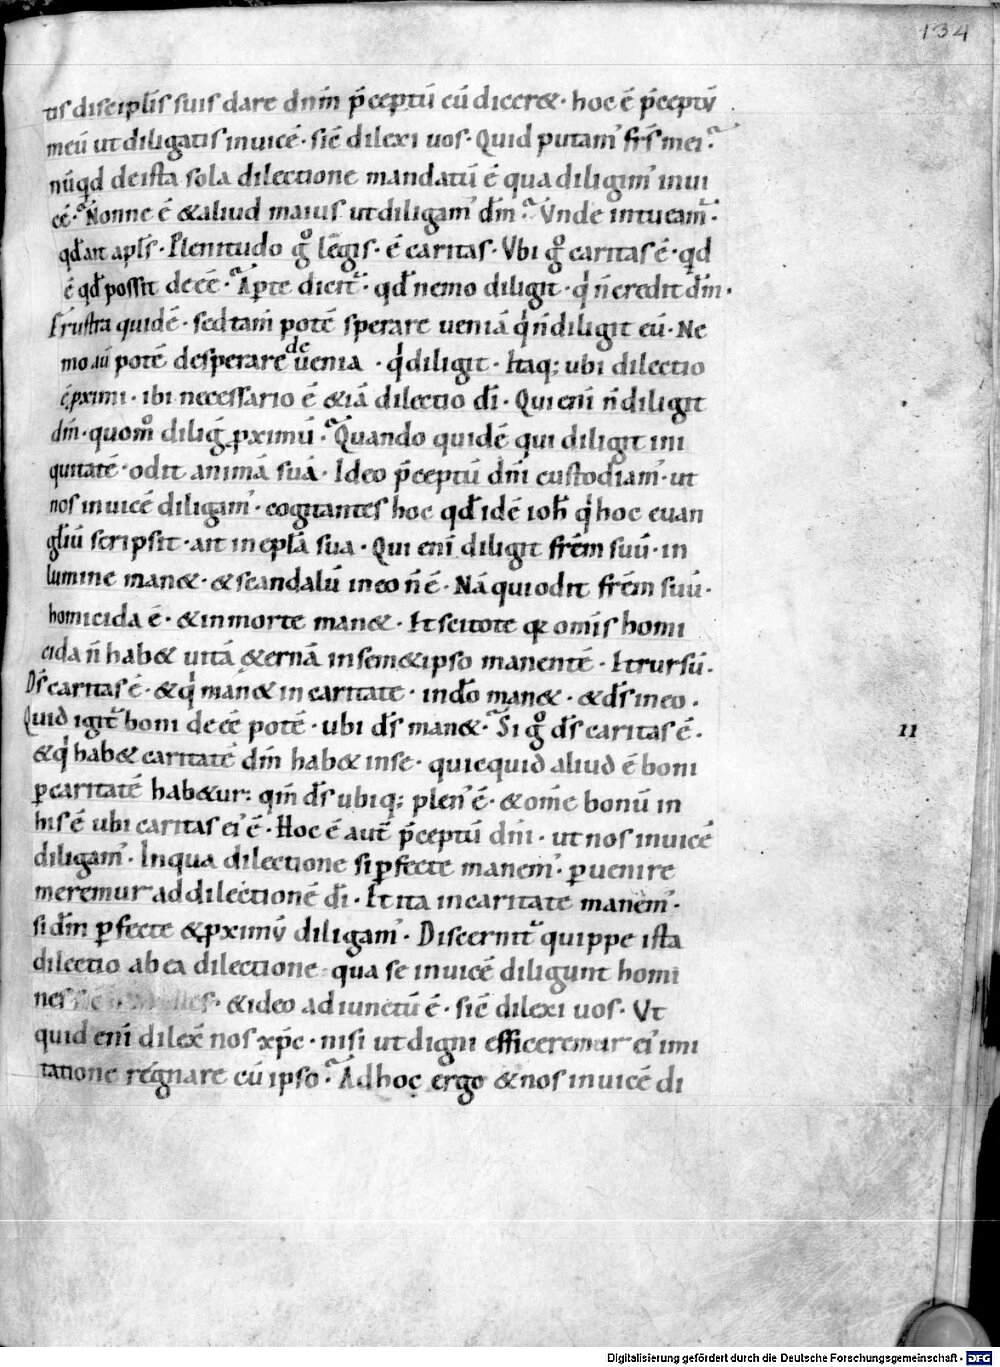 134
tis discipl̄is suis dare dn̄m p̄ceptū cū dicer&· hoc ē p̄ceptū
meū ut diligatis inuicē· sic̄ dilexi uos· Quid putam' fr̄s mei?
nūq̄d de ista sola dilectione mandatū ē qua diligim' inui
cē? Nonne ē & aliud maius ut diligam' d̄m? Vnde intueam̄·
qd̄ ait apl̄s· Plenitudo g° legis· ē caritas· Vbi g° caritas ē· qd̄
ē qd̄ possit deēē? Apte dicit̄· qd̄ nemo diligit· q' n̄ credit d̄m·
Frustra quidē· sed tam̄ potē sperare ueniā q' n̄ diligit eū· Ne
mo aū potē desperare de uenia · q' diligit· Itaq; ubi dilectio
ē p̄ximi· ibi necessario ē & iā dilectio d̄i· Qui eni n̄ diligit
dm̄· quom° diliḡ p̄ximū? Quando quidē qui diligit ini
quitatē· odit animā suā· Ideo p̄ceptū dn̄i custodiam'· ut
nos inuicē diligam'· cogitantes hoc qd̄ idē ioh̄ q' hoc euan
gl̄iū scripsit· ait in epl̄a sua· Qui eni diligit fr̄em suū· in
lumine man&· & scandalū in eo n̄ ē· Nā qui odit fr̄em suū·
homicida ē· & in morte man&· Et scitote qr om̄is homi
cida n̄ hab& uitā &ernā in sem&ipso manentē· Et rursū·
Ds̄ caritas ē· & q' man& in caritate· in d̄o man&· & ds̄ in eo·
Quid igit̄ boni deēē potē· ubi ds̄ man&? Si g° ds̄ caritas ē·
& q' hab& caritatē dm̄ hab& in se· quicquid aliud ē boni
p caritatē hab&ur: qm̄ ds̄ ubiq; plen' ē· & om̄e bonū in
his ē ubi caritas ei' ē· Hoc ē aut̄ p̄ceptū dn̄i· ut nos inuicē
11
diligam'· In qua dilectione si pfecte manem'· puenire
meremur ad dilectionē d̄i· Et ita in caritate manem'·
si d̄m pfecte & p̄ximū diligam'· Discernit̄ quippe ista
dilectio ab ea dilectione qua se inuicē diligunt homi
nes · & ideo adiunctū ē· sic̄ dilexi uos· Vt
quid eni dilex̄ nos xp̄c· nisi ut digni efficeremur ei' imi
tatione regnare cū ipso? Ad hoc ergo & nos inuicē di
Digitalisierung gefördert durch die Deutsche Forschungsgemeinschaft - DFG